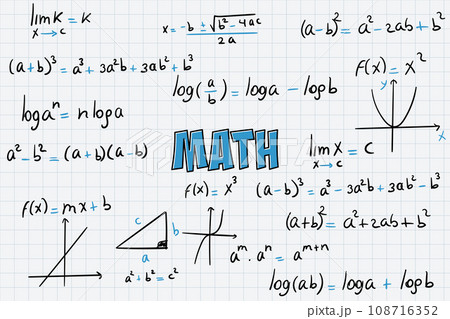 lim K = K
x→c
x = -b ± √b² - 4ac
2a
(a-b)² = a² - 2ab + b²
(a+b)³ = a³ + 3a²b + 3ab² + b³
log(a/b) = loga - logb
f(x) = x²
y
x
logaⁿ = nloga
a² - b² = (a+b)(a-b)
MATH
lim x = c
x→c
f(x) = x³
(a-b)³ = a³ - 3a²b + 3ab² - b³
f(x) = mx + b
c
b
a
a² + b² = c²
(a+b)² = a² + 2ab + b²
aᵐ · aⁿ = aᵐ⁺ⁿ
log(ab) = loga + logb
108716352